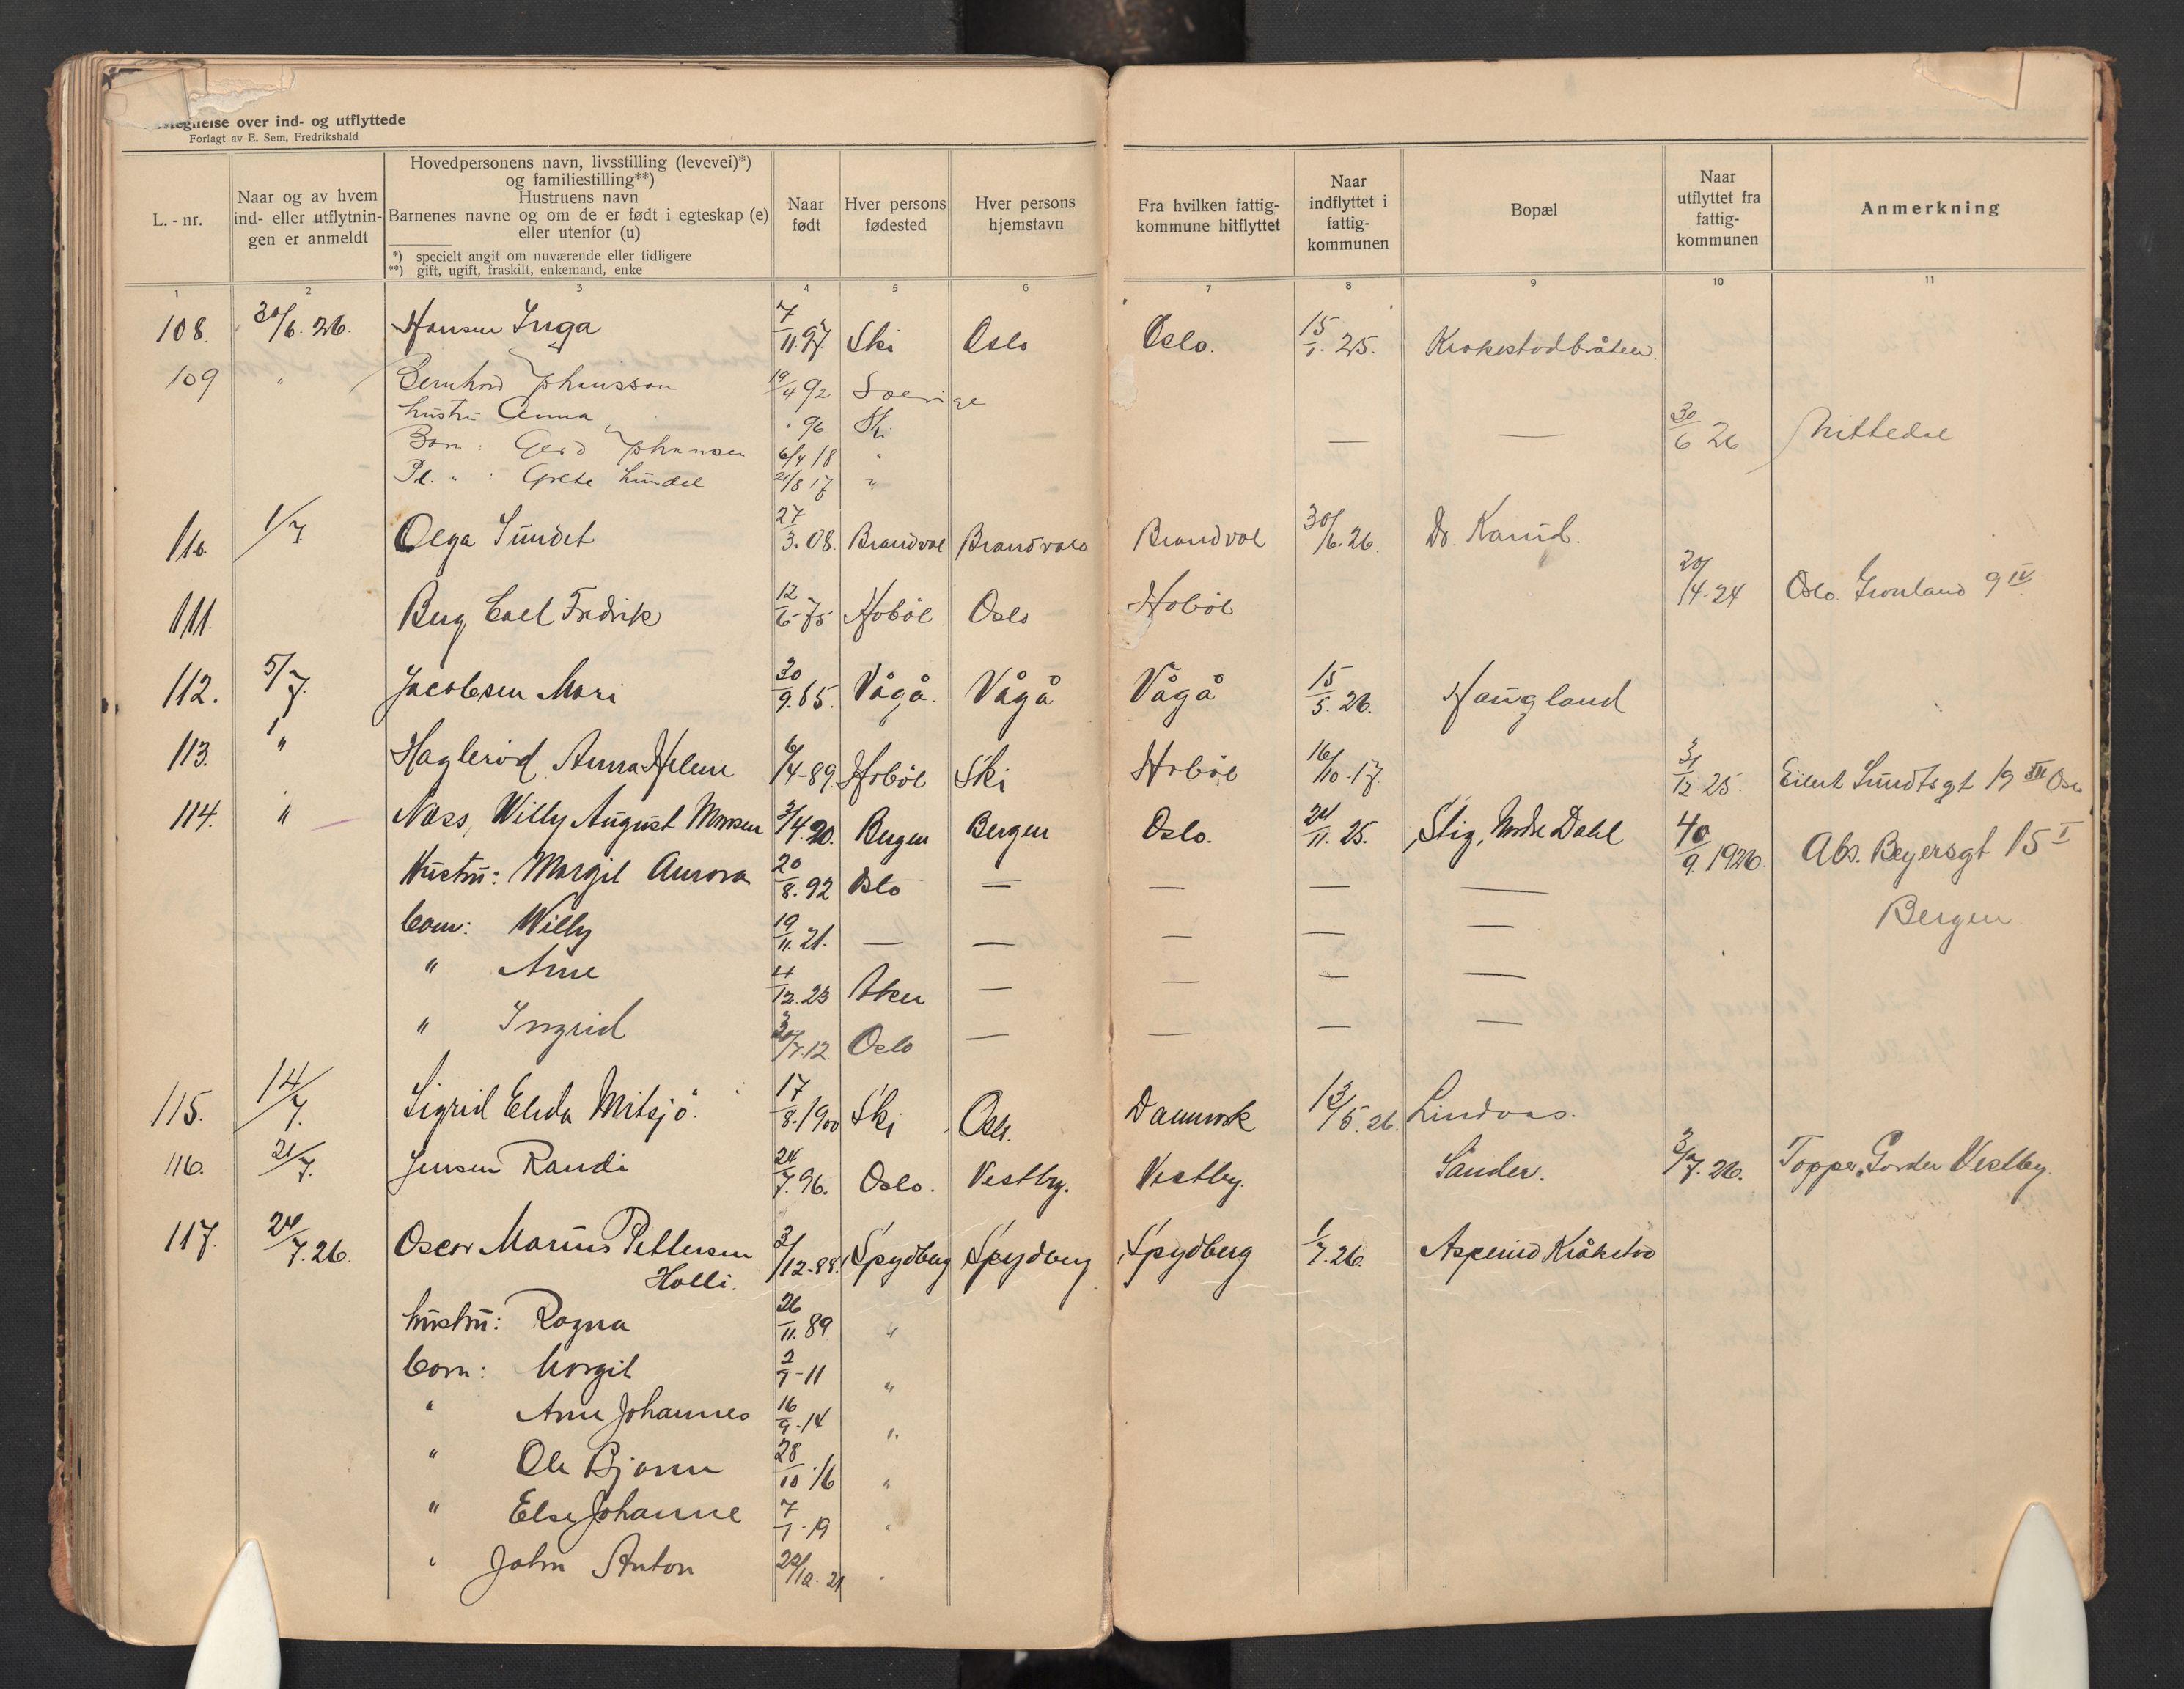 egnelse over ind- og utflyttede
Forlagt av E. Sem, Fredrikshald
L. - nr.
Naar og av hvem
ind- eller utflytnin-
gen er anmeldt
Hovedpersonens navn, livsstilling (levevei)*)
og familiestilling**)
Hustruens navn
Barnenes navne og om de er født i egteskap (e)
eller utenfor (u)
*) specielt angit om nuværende eller tidligere
**) gift, ugift, fraskilt, enkemand, enke
Naar
født
Hver persons
fødested
Hver persons
hjemstavn
Fra hvilken fattig-
kommune hitflyttet
Naar
indflyttet i
fattig-
kommunen
Bopæl
Naar
utflyttet fra
fattig-
kommunen
Anmerkning
1 2 3 4 5 6 7 8 9 10 11
108. 30/6. 26. Hansen Inga 7/11.97 Ski Oslo Oslo. 15/1. 25. Krokestadbråten.
109 " Bernhard Johansson 19/4 92 Sverige
hustru Anna " 96 Ski
Barn: Gerd Johansen 6/4 18 " — — 30/6 26 Nittedal
Pl. " : Grete Lundel 21/8 17 "
110. 1/7 Olga Sundet 27/3. 08. Brandval Brandval Brandval 30/6. 26. Do. Karud.
111. Berg Carl Fredrik 12/6-75 Hobøl Oslo Hobøl 20/4-24 Oslo. Grønland 9 IV
112. 5/7. Jacobsen Mari 30/9.65. Vågå. Vågå Vågå 15/5. 26. Haugland
113. " Haglerød Anna Helene 6/4-89 Hobøl Ski Hobøl 16/10-17. 31/12-25. Eilert Sundtsgt 19 III Oslo
114. " Næss, Willy August Monsen 3/4.90. Bergen Bergen Oslo. 24/11. 25. Stig, Nordre Dahl /9 1926. Abs. Beyersgt 15 I
Hustru: Margit Aurora 20/8. 92 Oslo — — — —
Bergen
barn: Willy 19/11. 21. — — — — —
" Arne 4/12. 23 Aker — — — —
" Ingrid 30/7.12. Oslo — — — —
115. 14/7. Sigrid Elida Mitsjö. 17/8.1900 Ski Oslo. Danmark 13/5. 26. Lindaas.
116. 21/7. Jensen Randi 24/7. 96. Oslo. Vestby. Vestby. Sander. 3/7. 26. Topper, Garder Vestby.
117. 24/7. 26. Oscar Marius Pettersen 3/12-88. Spydberg Spydberg Spydberg 1/7. 26. Aspelund Kråkstad
Holli.
hustru: Ragna 26/11. 89 "
barn: Margit 2/7-11 "
" Arne Johannes 16/9-14 "
" Ole Bjarne 28/10-16 "
" Else Johanne 7/1-19 "
" John Anton 22/12-21 "